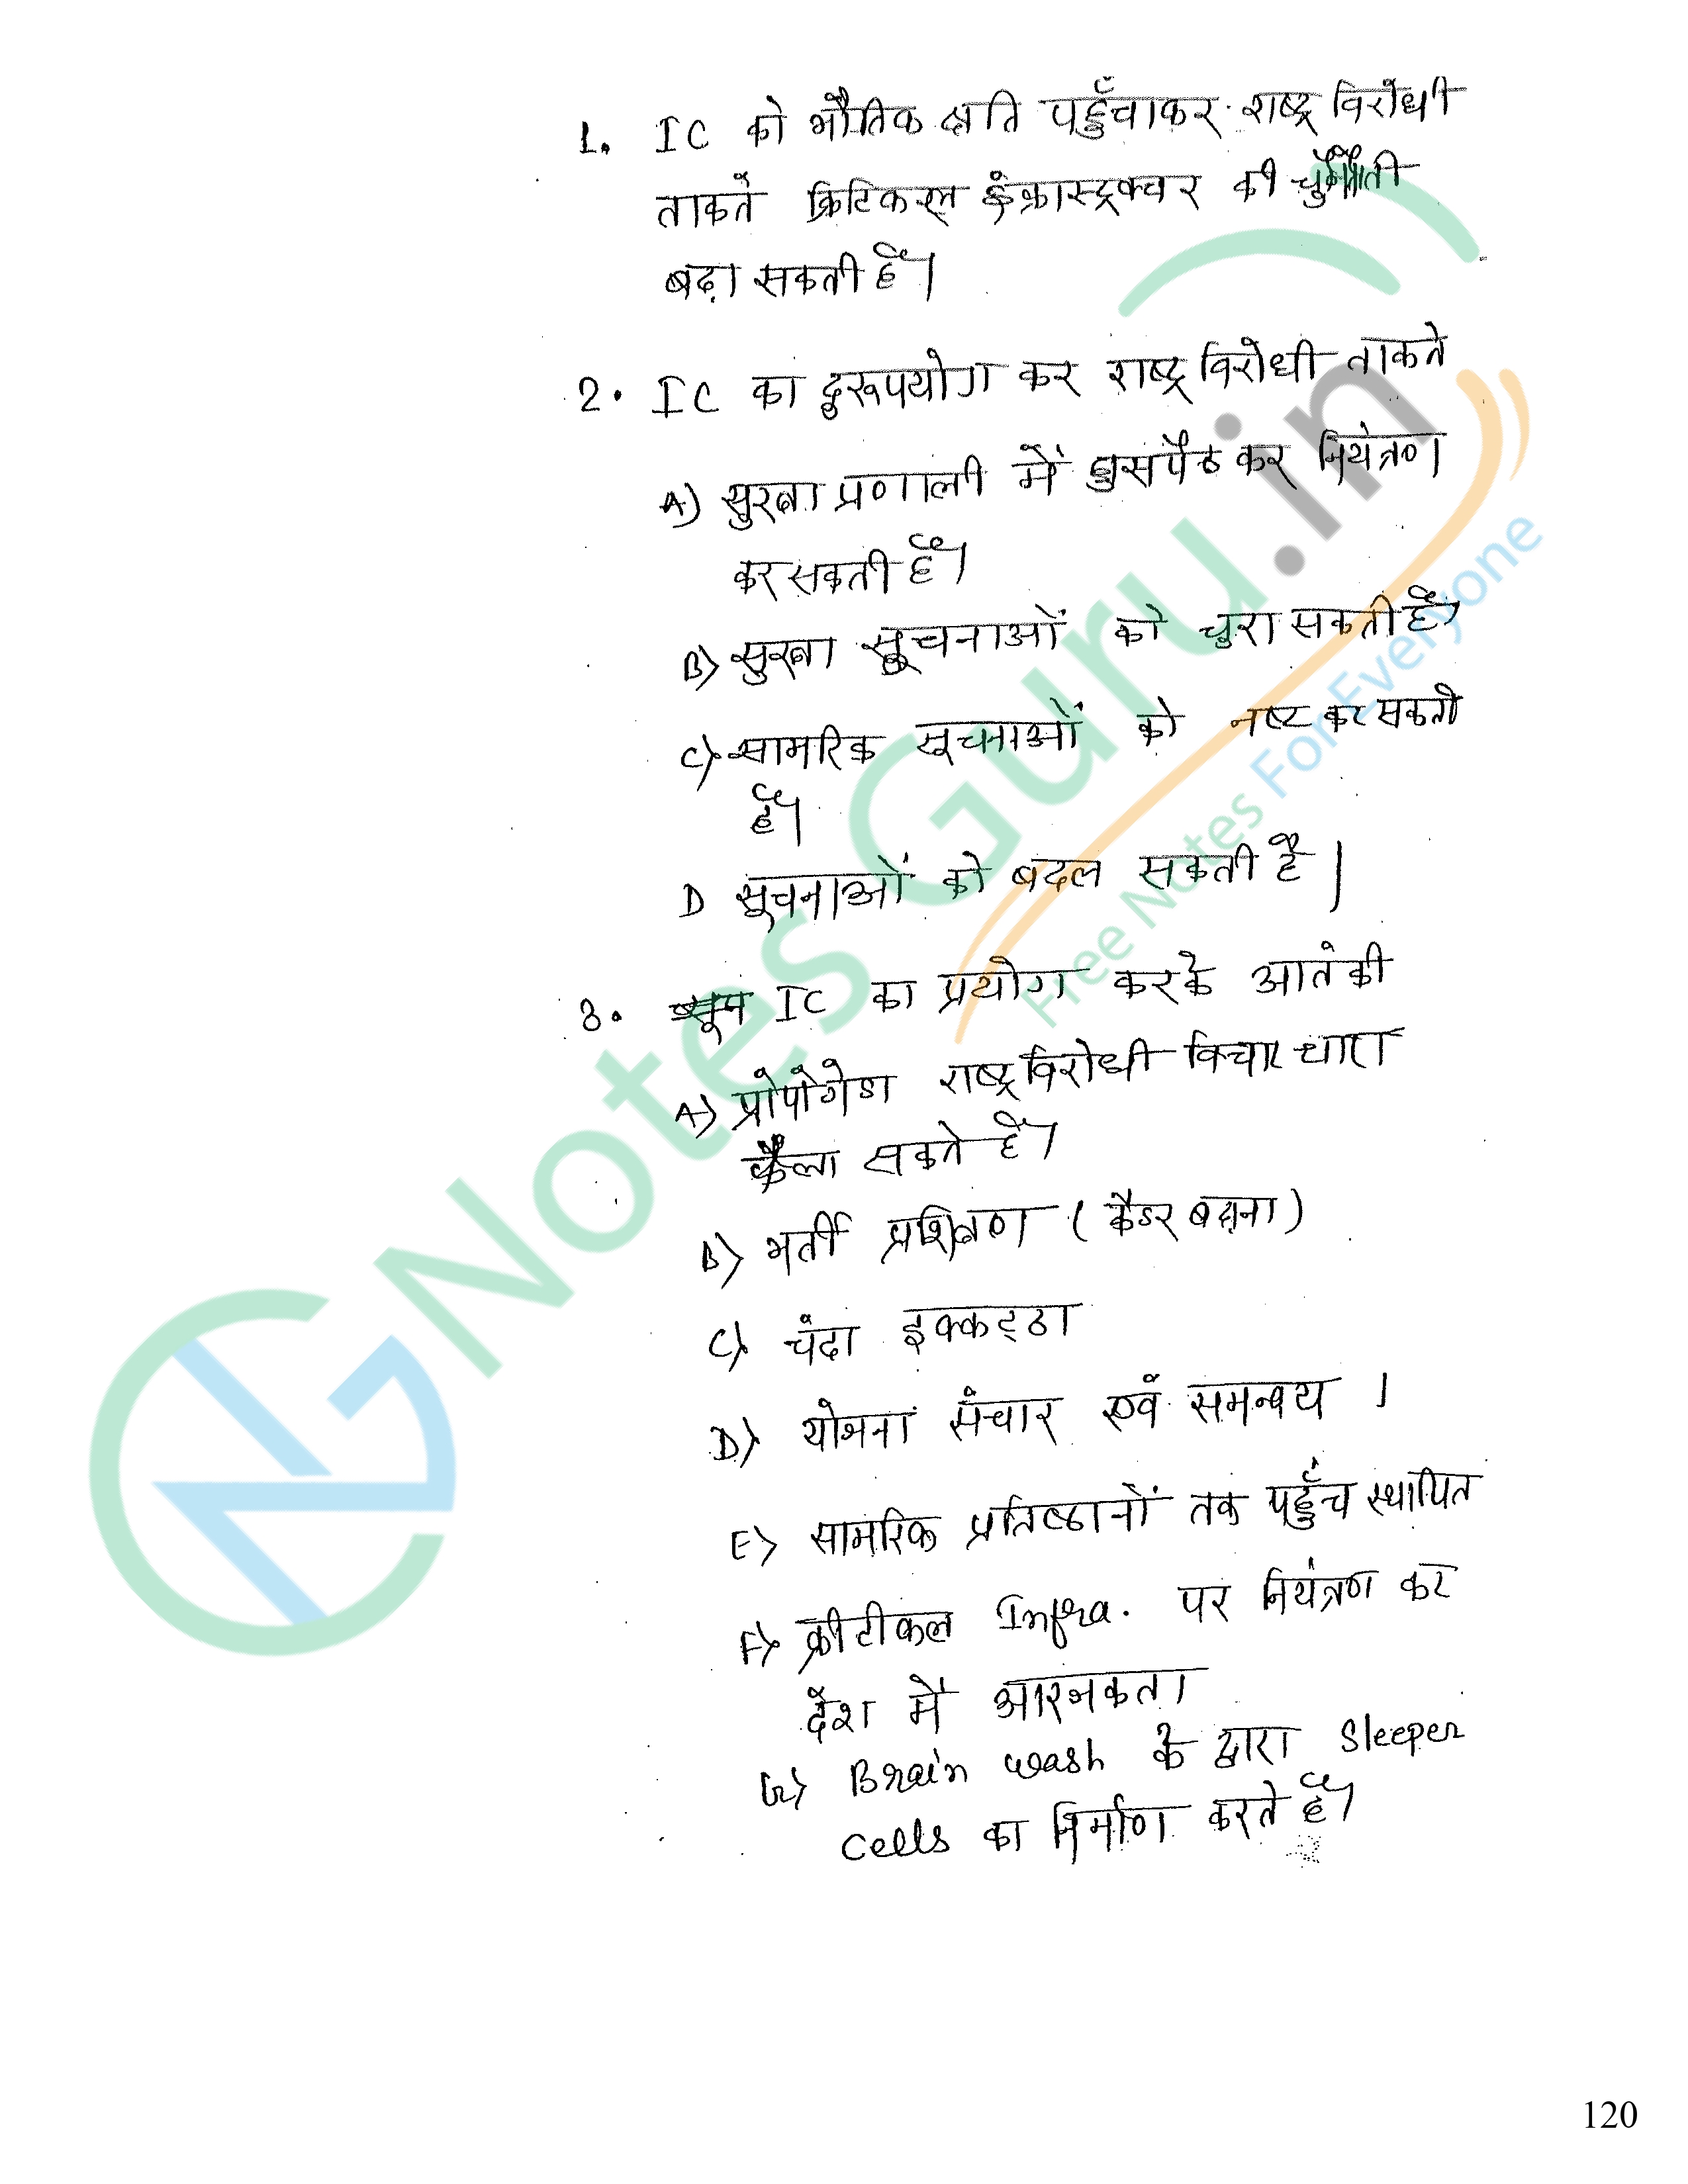 1. IC को भौतिक क्षति पहुँचाकर राष्ट्र विरोधी
ताकतें क्रिटिकल इंफ्रास्ट्रक्चर की चुनौती
बढ़ा सकती हैं।
2. IC का दुरूपयोग कर राष्ट्र विरोधी ताकते
A) सुरक्षा प्रणाली में घुसपैठ कर नियंत्रण
कर सकती हैं।
B) सुरक्षा सूचनाओं को चुरा सकती हैं।
C) सामरिक सूचनाओं को नष्ट कर सकती
हैं।
D सूचनाओं को बदल सकती है।
3. IC का प्रयोग करके आतंकी
A) प्रोपोगेडा राष्ट्र विरोधी विचारधारा
फैला सकते हैं।
B) भर्ती प्रशिक्षण (कैडर बढ़ाना)
C) चंदा इक्कट्ठा
D) योजना संचार एवं समन्वय।
E) सामरिक प्रतिष्ठानों तक पहुँच स्थापित
F) क्रीटीकल Infra. पर नियंत्रण कर
देश में आरजकता
G) Brain wash के द्वारा Sleeper
cells का निर्माण करते हैं।
Notes Guru.in
Free Notes For Everyone
120